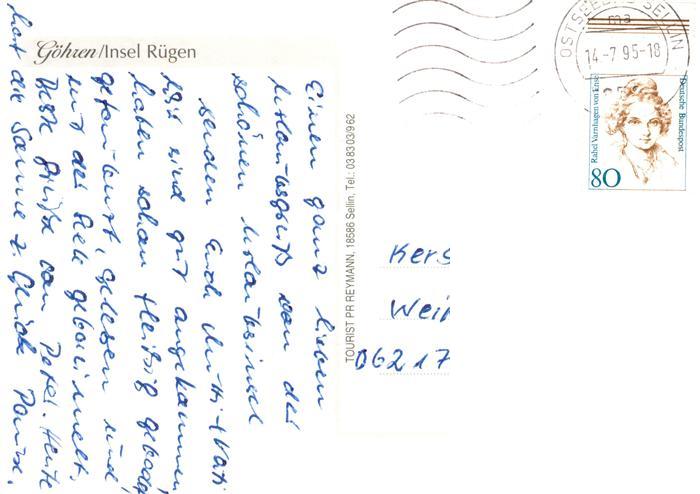 Göhren/Insel Rügen
Einen ganz lieben
Urlaubsgruß von der
schönen Urlaubsinsel
senden Euch Mutti + Vati
Wir sind gut angekommen,
haben schon fleißig gebadet
gefaulenzt, gelesen und
und die Seele gebaumelt.
Viele Grüße von Peter. Heute
hat die Sonne z. Glück Pause.
TOURIST PR REYMANN, 18586 Sellin, Tel.: 038303/962
OSTSEEBAD SELLIN
ma
14-7 95-18
Rahel Varnhagen von Ense
Deutsche Bundespost
80
Kers
Wei
06217